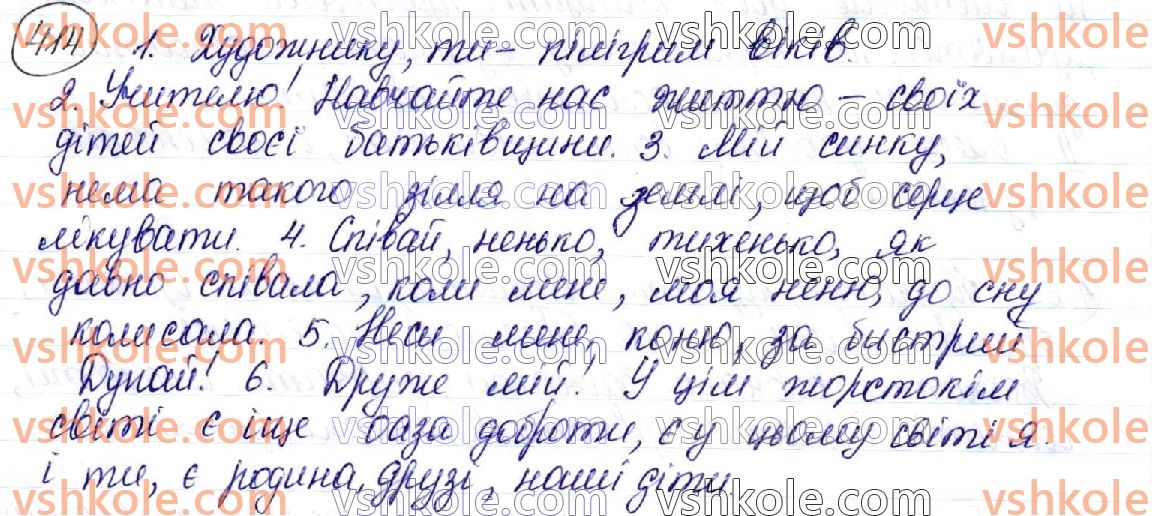 414 1. Художнику, ти – пілігрим віків.
2. Учителю! Навчайте нас життю – своїх
дітей своєї батьківщини. 3. Мій синку,
нема такого зілля на землі, щоб серце
лікувати. 4. Співай, ненько, тихенько, як
давно співала, коли мене, моя неню, до сну
колисала. 5. Неси мене, коню, за быстрий
Дунай! 6. Друже мій! У цім жорстокім
світі є іще оаза доброти, є у цьому світі я
і ти, є родина, друзі, наші діти.